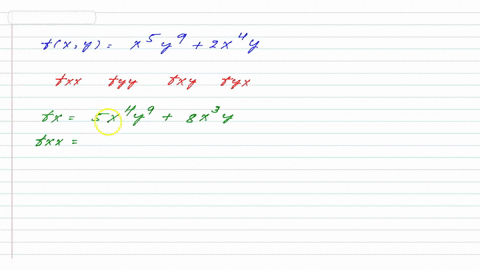 f(x,y) = x⁵y⁹ + 2x⁴y
fxx fyy fxy fyx
fx = 5x⁴y⁹ + 8x³y
fxx =